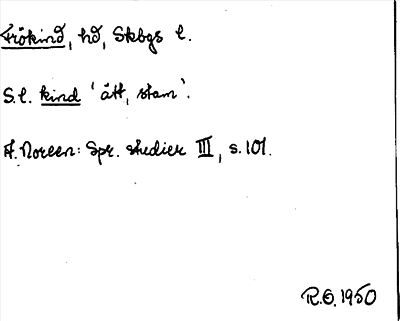 Frökind, hd, Skbgs l.
S.l. kind 'ätt, stam'.
A. Noreen: Spr. studier III, s. 101.
R.O. 1950